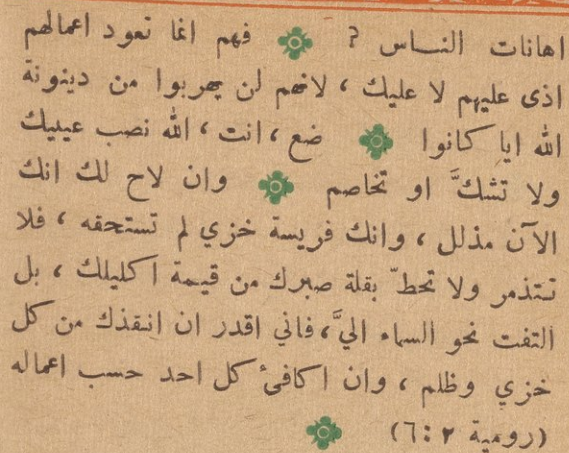 اهانات النـاس ? فهم انما تعود اعمالهم
اذى عليهم لا عليك ، لانهم لن يهربوا من دينونة
الله ايا كانوا ضع ، انت ، الله نصب عينيك
ولا تشكَّ او تخاصم وان لاح لك انك
الآن مذلل ، وانك فريسة خزي لم تستحقه ، فلا
تتذمر ولا تحطّ بقلة صبرك من قيمة اكليلك ، بل
التفت نحو السماء اليَّ ، فاني اقدر ان انقذك من كل
خزي وظلم ، وان اكافئ كل احد حسب اعماله
(رومية ٢ : ٦)